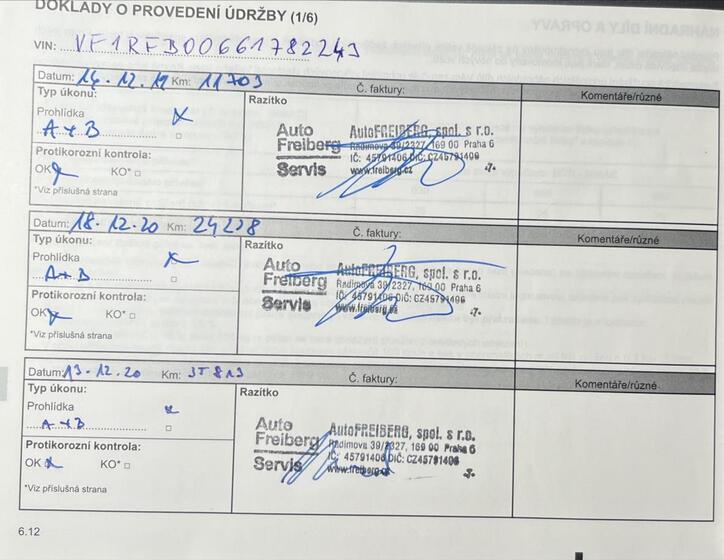 DOKLADY O PROVEDENÍ ÚDRŽBY (1/6)
VIN: VF1RFB00661782243
Datum: 14.12.19 Km: 11703
Č. faktury:
Komentáře/různé
Typ úkonu:
Razítko
Prohlídka
A+B
Protikorozní kontrola:
OK KO* □
*Viz příslušná strana
Auto Freiberg Servis
AutoFREIBERG, spol. s r.o.
Radimova 39/2327, 169 00 Praha 6
IČ: 45791406 DIČ: CZ45791406
www.freiberg.cz
-7-
Datum: 18.12.20 Km:
Č. faktury:
Komentáře/různé
Typ úkonu:
Razítko
Prohlídka
A+B
Protikorozní kontrola:
OK KO* □
*Viz příslušná strana
Auto Freiberg Servis
AutoFREIBERG, spol. s r.o.
Radimova 39/2327, 169 00 Praha 6
IČ: 45791406 DIČ: CZ45791406
www.freiberg.cz
-7-
Datum: 13.12.20 Km:
Č. faktury:
Komentáře/různé
Typ úkonu:
Razítko
Prohlídka
A+B
Protikorozní kontrola:
OK KO* □
*Viz příslušná strana
Auto Freiberg Servis
AutoFREIBERG, spol. s r.o.
Radimova 39/2327, 169 00 Praha 6
IČ: 45791406 DIČ: CZ45791406
www.freiberg.cz
6.12